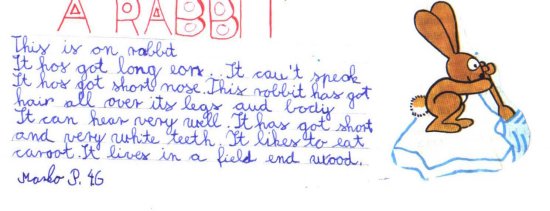 A RABBIT
This is on rabbit
It hos got long eors. It cau't speak
It hos got short nose. This robbit has got
hair all over its legs aud body
It can hear very well. It has got short
and very white teeth. It likes to eat
caroot. It lives in a field end wood.
Marko P. 4G